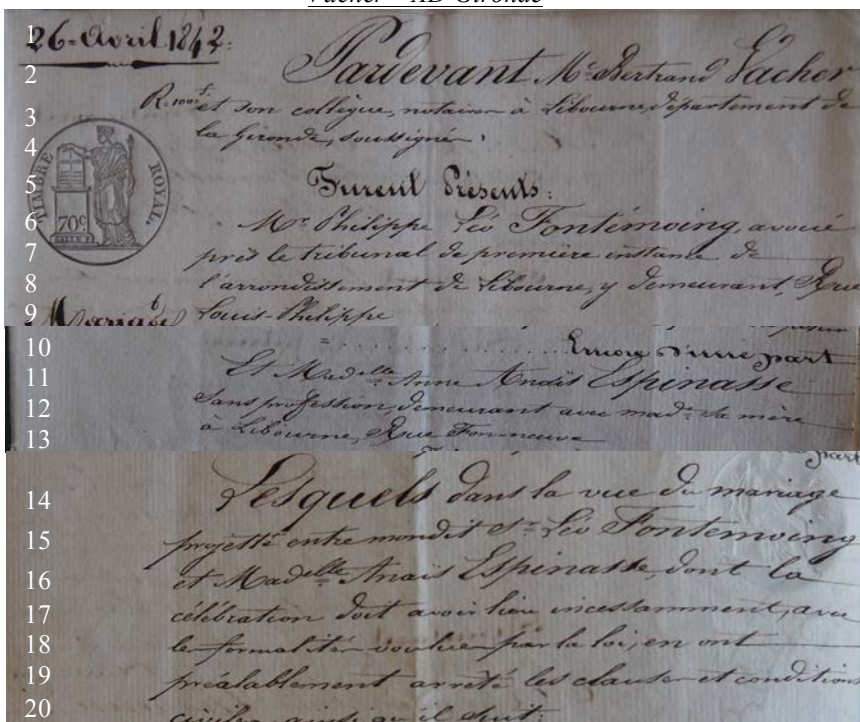 Vacher – AD Gironde
1 26 = avril 1842 :
2 Pardevant Me Bertrand Vacher
3 et son collègue, notaires à Libourne, département de
4 la Gironde, soussignés,
5 Furent Présents :
TIMBRE ROYAL.
70c
6 Mr Philippe Léo Fontémoing, avoué
7 près le tribunal de première instance de
8 l'arrondissement de Libourne, y demeurant, Rue
9 Mariage Louis-Philippe
10 Encore d'une part
11 Et Madelle Anne Anaïs Espinasse
12 Sans profession, demeurant avec made sa mère
13 à Libourne, Rue Fon-neuve
part
14 Lesquels dans la vue du mariage
15 projetté entre mondit Sr Léo Fontemoing
16 et Madelle Anaïs Espinasse, dont la
17 célébration doit avoir lieu incessamment, avec
18 les formalités voulues par la loi, en ont
19 préalablement arrêté les clauses et conditions
20 civiles ainsi qu'il suit :